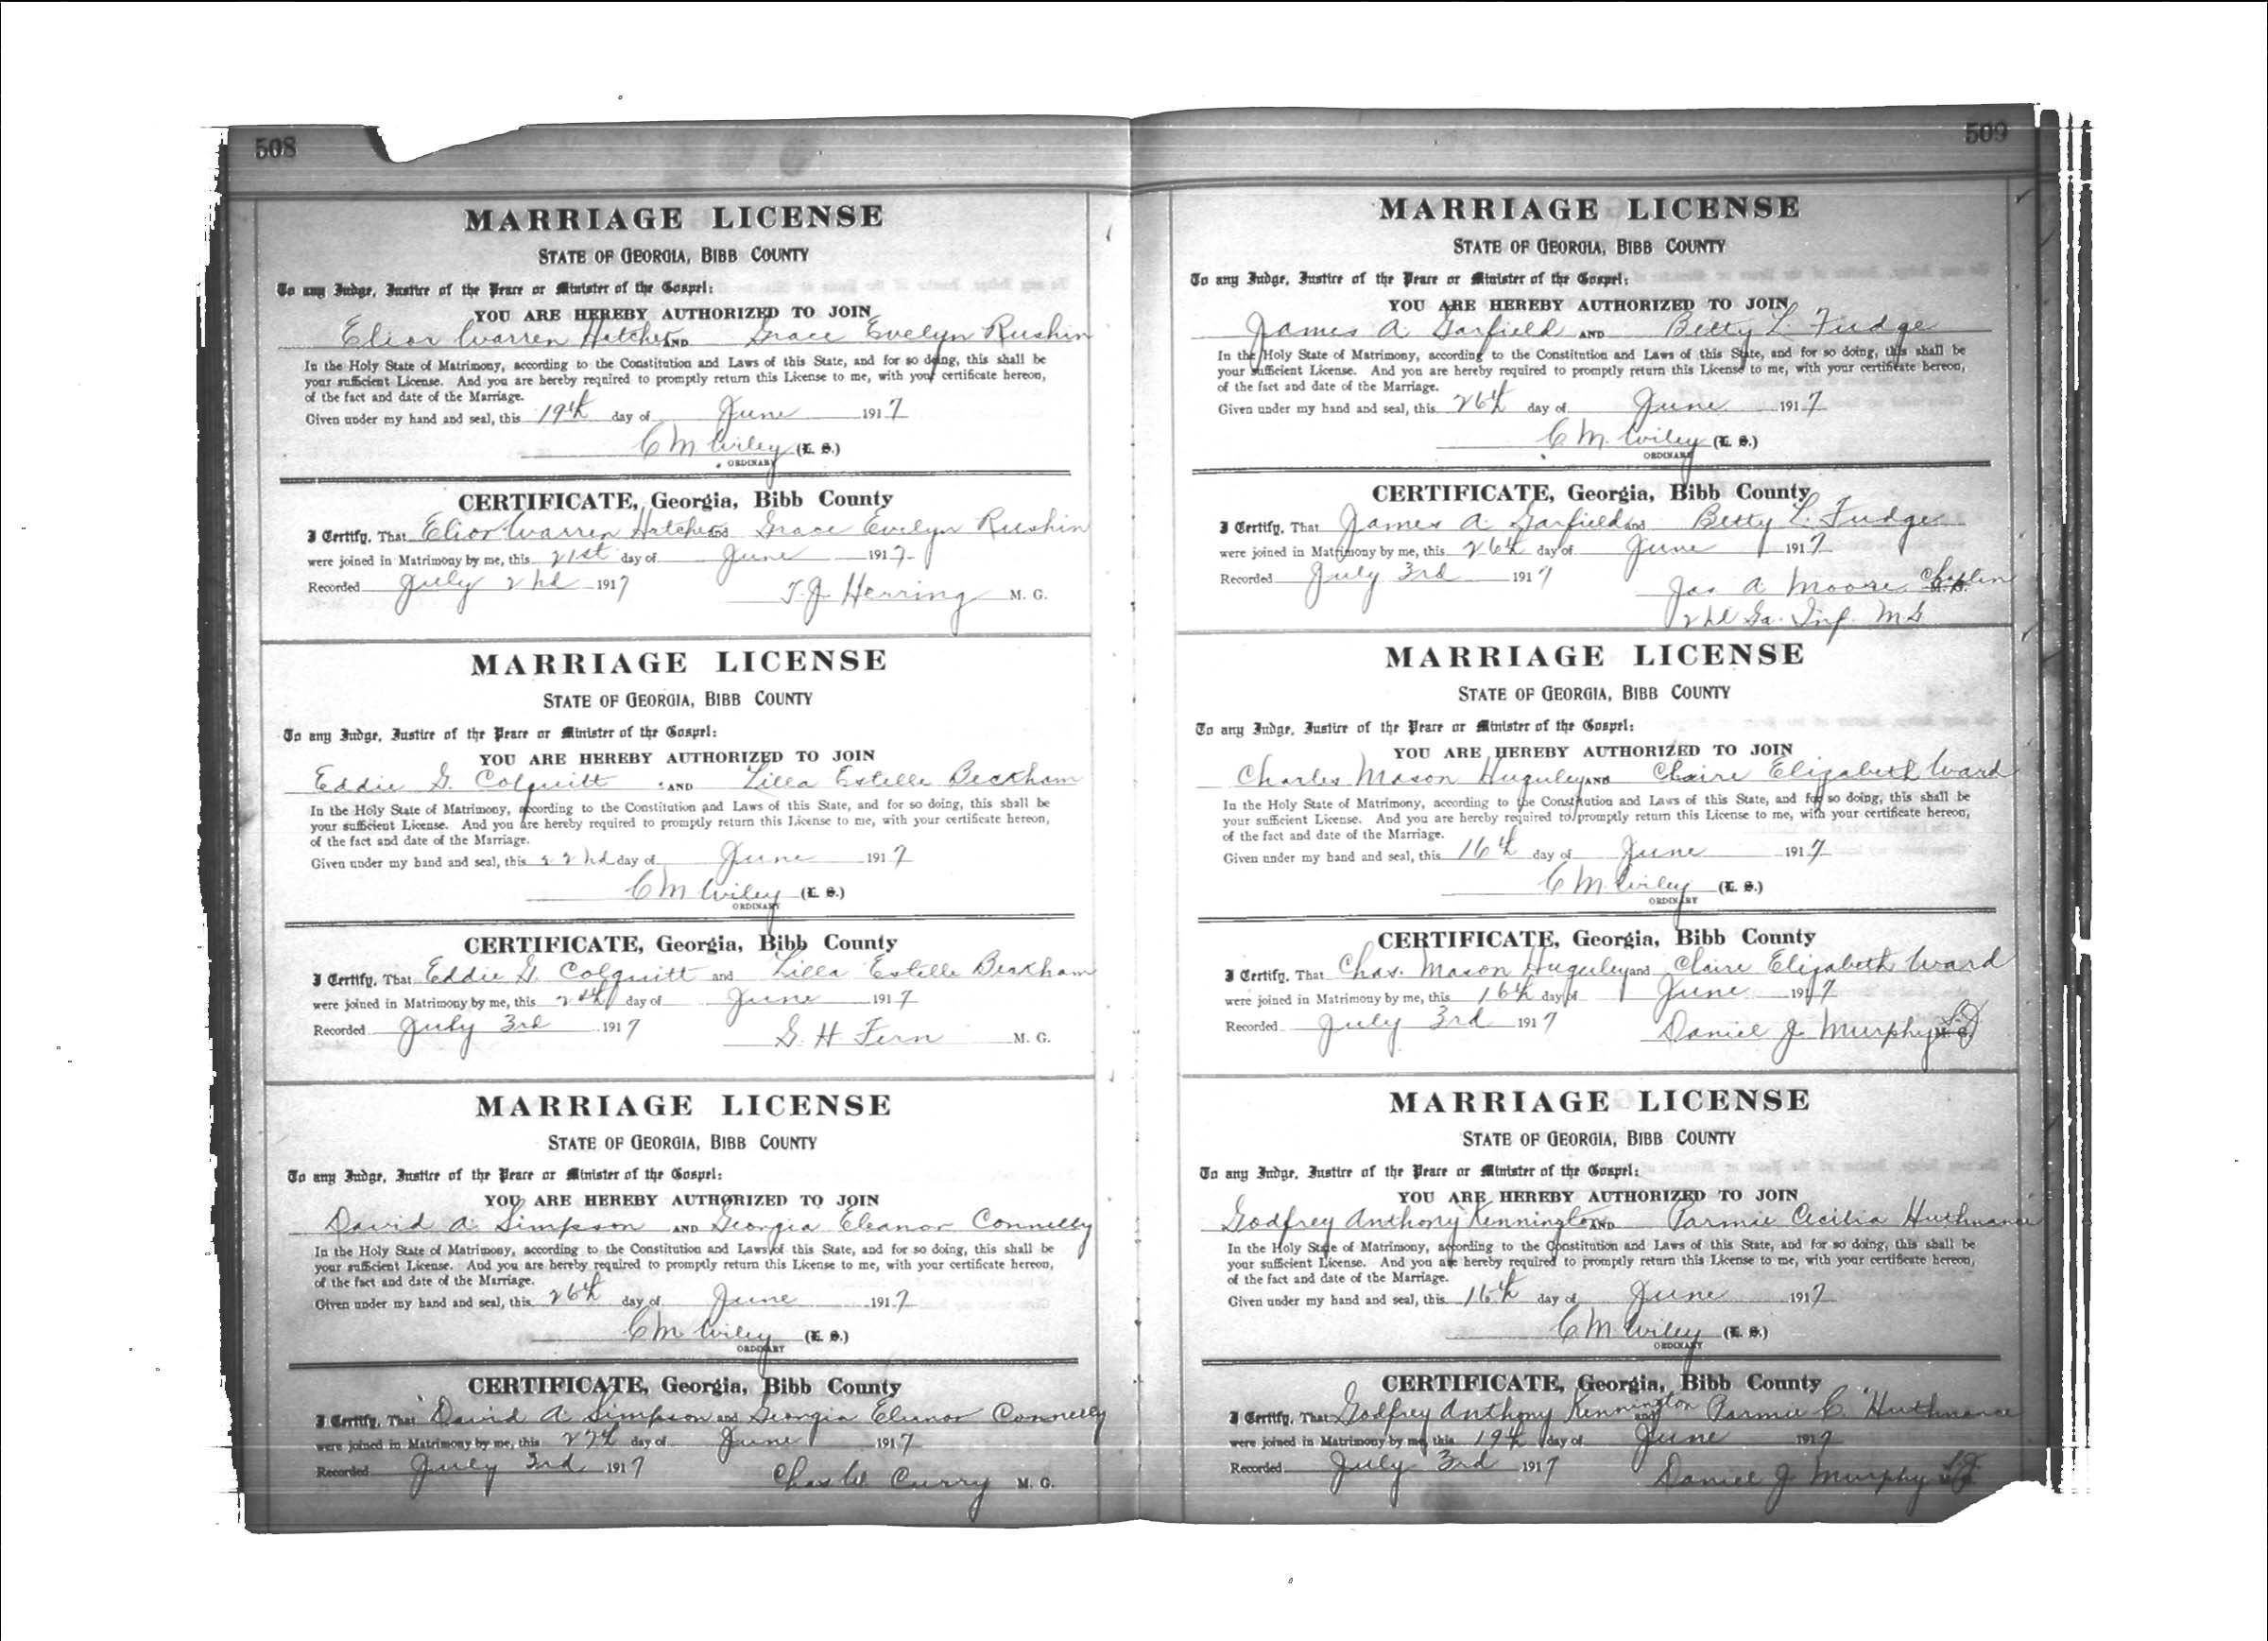 508
MARRIAGE LICENSE
STATE OF GEORGIA, BIBB COUNTY
To any Judge, Justice of the Peace or Minister of the Gospel:
YOU ARE HEREBY AUTHORIZED TO JOIN
Elior Warren Hatcher AND Grace Evelyn Rushin
In the Holy State of Matrimony, according to the Constitution and Laws of this State, and for so doing, this shall be
your sufficient License. And you are hereby required to promptly return this License to me, with your certificate hereon,
of the fact and date of the Marriage.
Given under my hand and seal, this 19th day of June 1917
C M Wiley (L. S.)
ORDINARY
CERTIFICATE, Georgia, Bibb County
I Certify, That Elior Warren Hatcher and Grace Evelyn Rushin
were joined in Matrimony by me, this 21st day of June 1917
Recorded July 2nd 1917 T. J. Herring M. G.
MARRIAGE LICENSE
STATE OF GEORGIA, BIBB COUNTY
To any Judge, Justice of the Peace or Minister of the Gospel:
YOU ARE HEREBY AUTHORIZED TO JOIN
Eddie G. Colquitt AND Lilla Estelle Beckham
In the Holy State of Matrimony, according to the Constitution and Laws of this State, and for so doing, this shall be
your sufficient License. And you are hereby required to promptly return this License to me, with your certificate hereon,
of the fact and date of the Marriage.
Given under my hand and seal, this 22nd day of June 1917
C M Wiley (L. S.)
ORDINARY
CERTIFICATE, Georgia, Bibb County
I Certify, That Eddie G. Colquitt and Lilla Estelle Beckham
were joined in Matrimony by me, this day of June 1917
Recorded July 3rd 1917 G. H Fern M. G.
MARRIAGE LICENSE
STATE OF GEORGIA, BIBB COUNTY
To any Judge, Justice of the Peace or Minister of the Gospel:
YOU ARE HEREBY AUTHORIZED TO JOIN
David A. Simpson AND Georgia Eleanor Connelly
In the Holy State of Matrimony, according to the Constitution and Laws of this State, and for so doing, this shall be
your sufficient License. And you are hereby required to promptly return this License to me, with your certificate hereon,
of the fact and date of the Marriage.
Given under my hand and seal, this 26th day of June 1917
C M Wiley (L. S.)
ORDINARY
CERTIFICATE, Georgia, Bibb County
I Certify, That David A. Simpson and Georgia Eleanor Connelly
were joined in Matrimony by me, this 27th day of June 1917
Recorded July 3rd 1917 Chas W. Curry M. G.
509
MARRIAGE LICENSE
STATE OF GEORGIA, BIBB COUNTY
To any Judge, Justice of the Peace or Minister of the Gospel:
YOU ARE HEREBY AUTHORIZED TO JOIN
James A. Garfield AND Betty L. Fudge
In the Holy State of Matrimony, according to the Constitution and Laws of this State, and for so doing, this shall be
your sufficient License. And you are hereby required to promptly return this License to me, with your certificate hereon,
of the fact and date of the Marriage.
Given under my hand and seal, this 26th day of June 1917
C M. Wiley (L. S.)
ORDINARY
CERTIFICATE, Georgia, Bibb County
I Certify, That James A. Garfield and Betty L. Fudge
were joined in Matrimony by me, this 26th day of June 1917
Recorded July 3rd 1917 Jas A Moore
2nd Ga. Inf. M G
MARRIAGE LICENSE
STATE OF GEORGIA, BIBB COUNTY
To any Judge, Justice of the Peace or Minister of the Gospel:
YOU ARE HEREBY AUTHORIZED TO JOIN
Charles Mason Huguley AND Claire Elizabeth Ward
In the Holy State of Matrimony, according to the Constitution and Laws of this State, and for so doing, this shall be
your sufficient License. And you are hereby required to promptly return this License to me, with your certificate hereon,
of the fact and date of the Marriage.
Given under my hand and seal, this 16th day of June 1917
C M. Wiley (L. S.)
ORDINARY
CERTIFICATE, Georgia, Bibb County
I Certify, That Chas. Mason Huguley and Claire Elizabeth Ward
were joined in Matrimony by me, this 16th day of June 1917
Recorded July 3rd 1917 Daniel J. Murphy
MARRIAGE LICENSE
STATE OF GEORGIA, BIBB COUNTY
To any Judge, Justice of the Peace or Minister of the Gospel:
YOU ARE HEREBY AUTHORIZED TO JOIN
Godfrey Anthony Kennington AND Parmie Cecilia Huthnance
In the Holy State of Matrimony, according to the Constitution and Laws of this State, and for so doing, this shall be
your sufficient License. And you are hereby required to promptly return this License to me, with your certificate hereon,
of the fact and date of the Marriage.
Given under my hand and seal, this 16th day of June 1917
C M Wiley (L. S.)
ORDINARY
CERTIFICATE, Georgia, Bibb County
I Certify, That Godfrey Anthony Kennington and Parmie C. Huthnance
were joined in Matrimony by me, this 19th day of June 1917
Recorded July 3rd 1917 Daniel J. Murphy